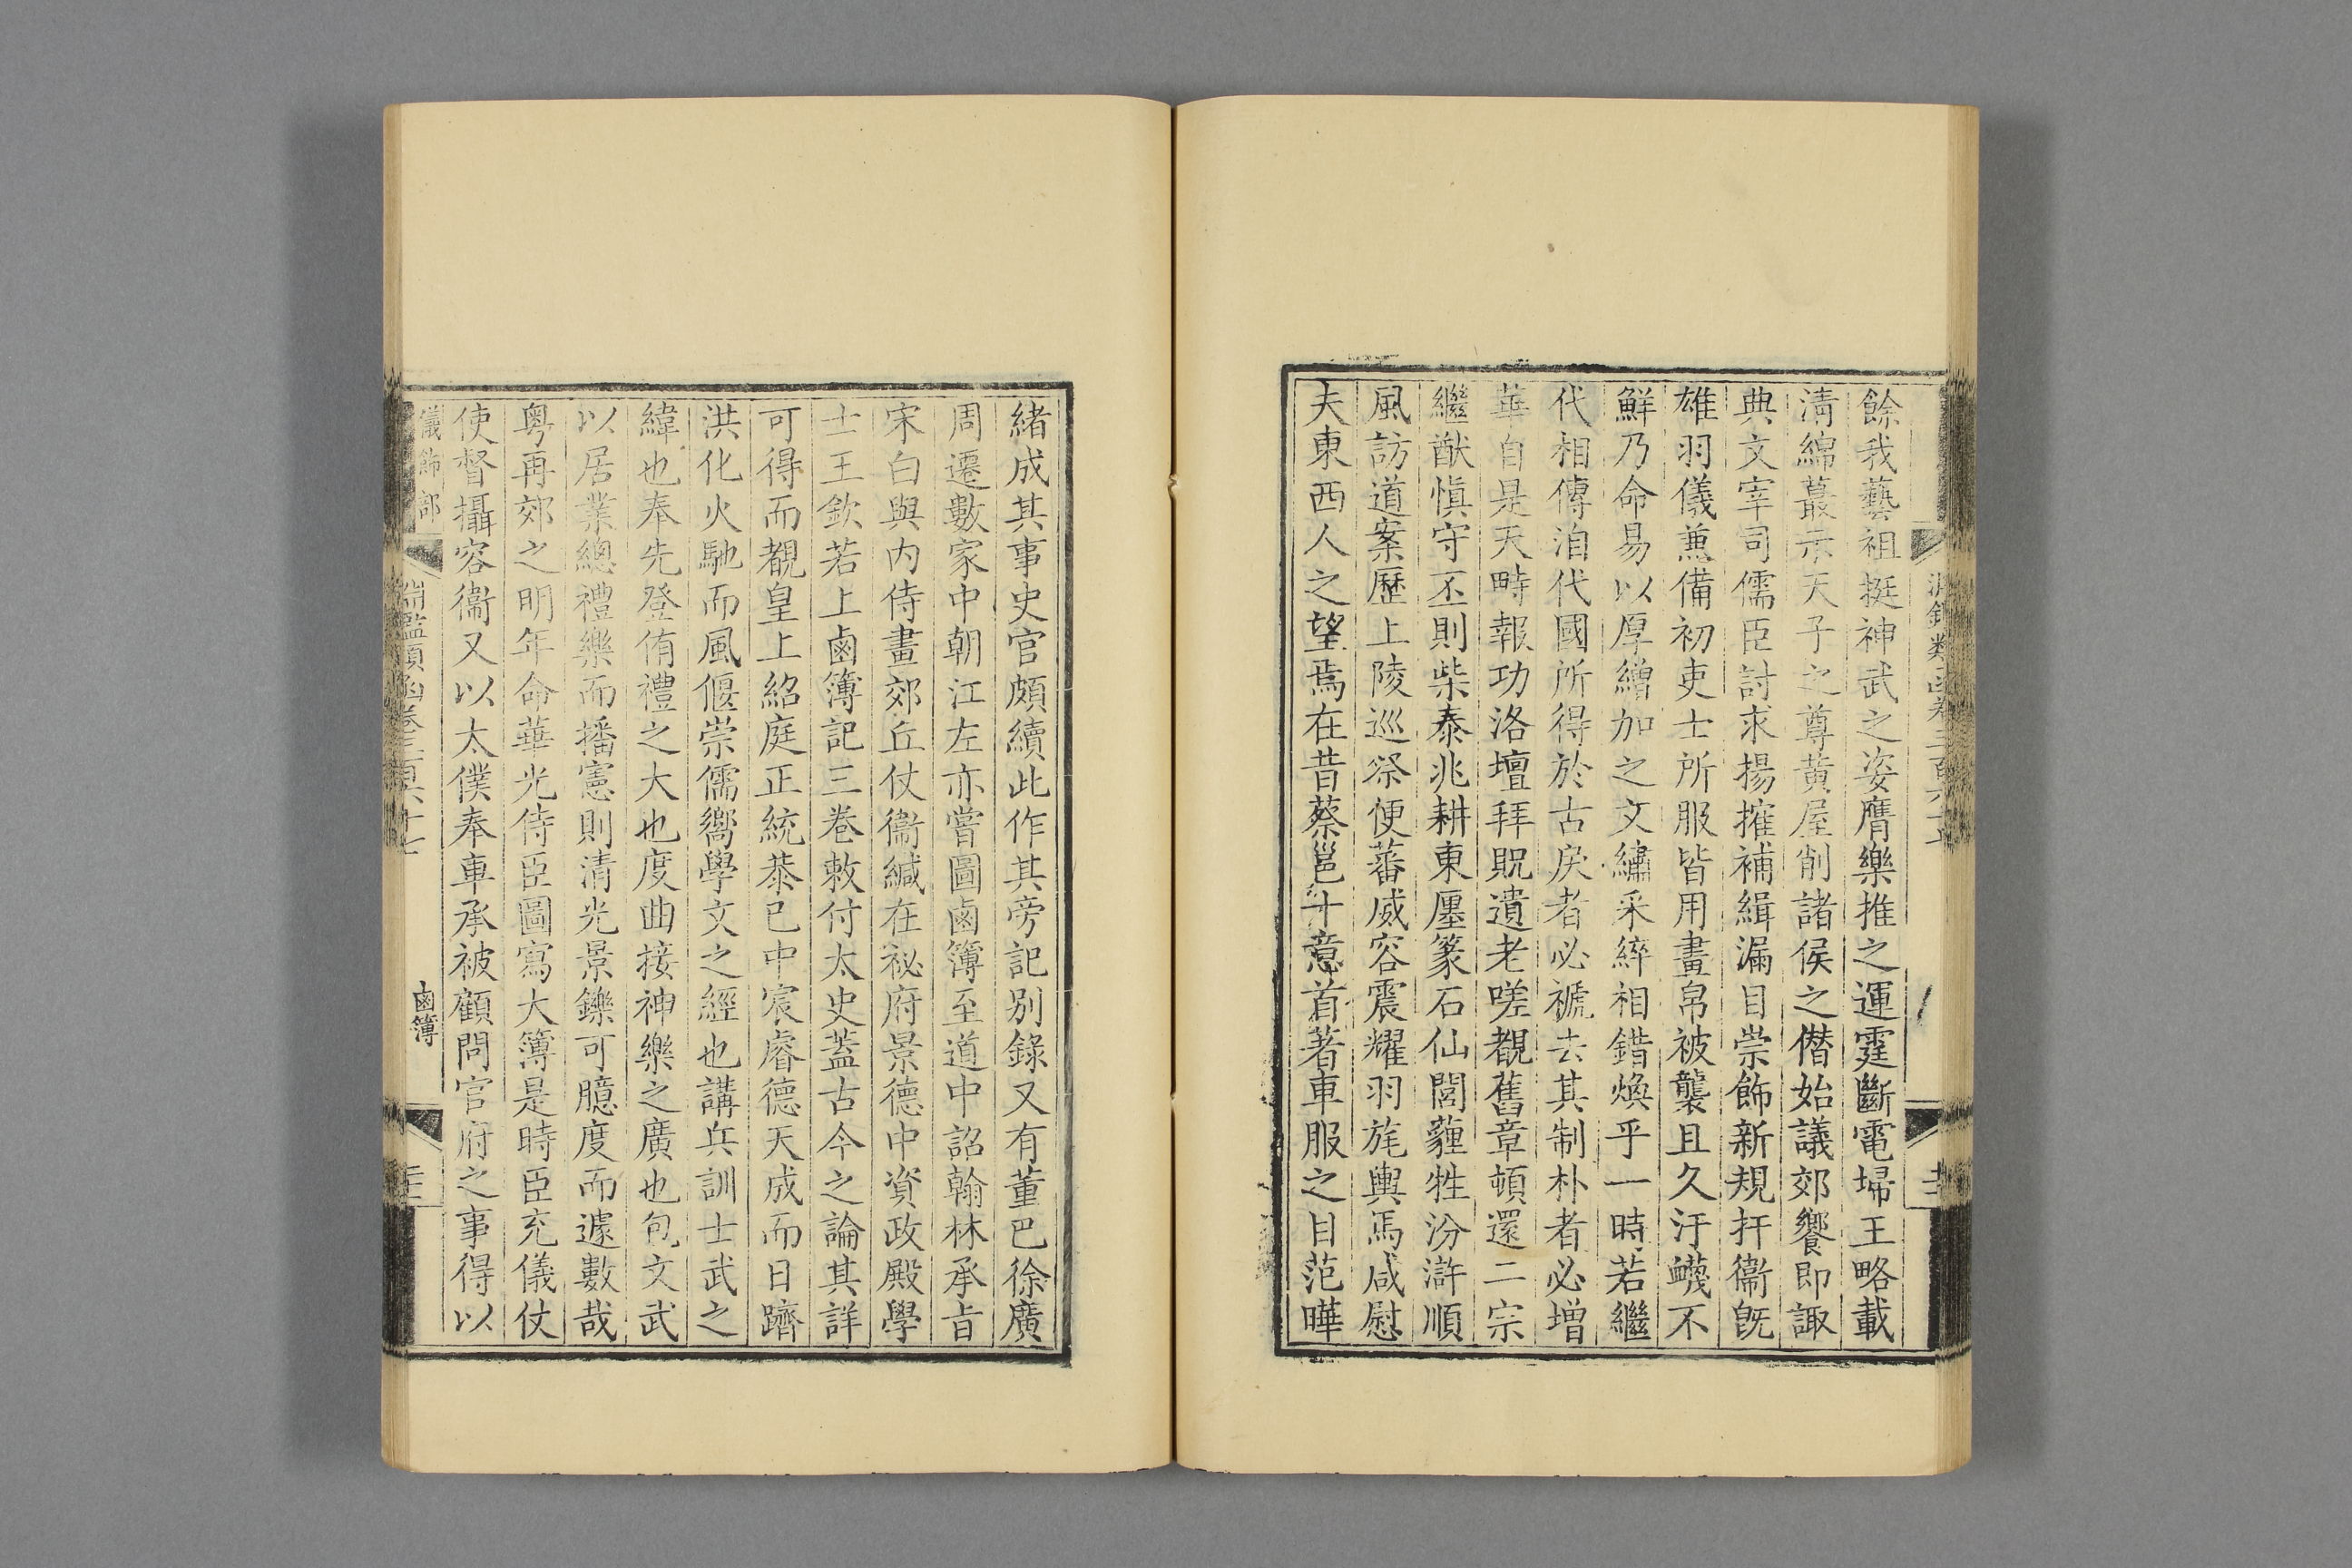 餘我藝祖挺神武之姿膺樂推之運霆斷電埽王略載
淸綿蕞示天子之尊黃屋削諸侯之僭始議郊饗即諏
典文宰司儒臣討求揚搉補緝漏目崇飾新規扞衞旣
雄羽儀兼備初吏士所服皆用畫帛被襲且久汙衊不
鮮乃命易以厚繒加之文繡采綷相錯煥乎一時若繼
代相傳洎代國所得於古戾者必褫去其制朴者必增
華自是天畤報功洛壇拜貺遺老嗟覩舊章頓還二宗
繼猷愼守丕則柴泰兆耕東廛篆石仙閭薶牲汾滸順
風訪道案歷上陵巡祭便蕃威容震耀羽旄輿馬咸慰
夫東西人之望焉在昔蔡邕十意首著車服之目范曄
緖成其事史官頗續此作其旁記别錄又有董巴徐廣
周遷數家中朝江左亦嘗圖鹵簿至道中詔翰林承旨
宋白與内侍畫郊丘仗衞緘在祕府景德中資政殿學
士王欽若上鹵簿記三卷敕付太史蓋古今之論其詳
可得而覩皇上紹庭正統恭己中宸睿德天成而日躋
洪化火馳而風偃崇儒嚮學文之經也講兵訓士武之
緯也奉先登侑禮之大也度曲接神樂之廣也包文武
以居業總禮樂而播憲則清光景鑠可臆度而遽數哉
粤再郊之明年命華光侍臣圖寫大簿是時臣充儀仗
使督攝容衞又以太僕奉車承被顧問官府之事得以
儀飾部
淵鑑類函卷三百六十七
鹵簿